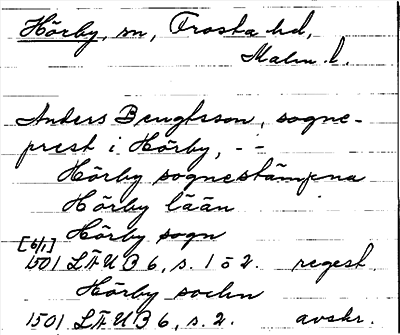 Hörby, sn, Frosta hd,
Malm. l.
Anders Bengtsson, sogne-
prest i Hörby, - -
Hörby sognestämpna
Hörby lään
Hörby sogn
[6/1]
1501 LÄUB 6, s. 1 o 2. regest.
Hörby sochn
1501 LÄUB 6, s. 2. avskr.